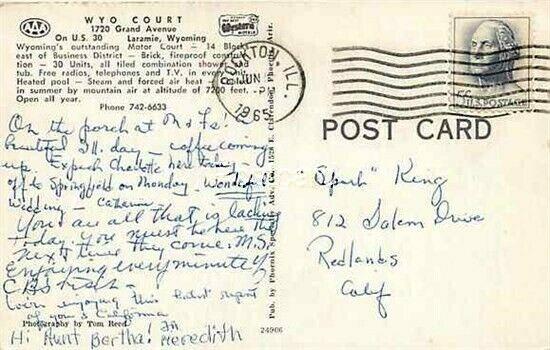 AAA
WYO COURT
1720 Grand Avenue
On U.S. 30 Laramie, Wyoming
Wyoming's outstanding Motor Court — 14 Blocks
east of Business District — Brick, fireproof construc-
tion — 30 Units, all tiled combination shower and
tub. Free radios, telephones and T.V. in every unit.
Heated pool — Steam and forced air heat — Cooled
in summer by mountain air at altitude of 7200 feet.
Open all year.
Phone 742-6633
Western
ILL.
JUN
PM
1965
5c U.S. POSTAGE
POST CARD
On the porch at M & F's! a
beautiful Ill. day — coffee coming
up. Expect Charlotte here today —
off to Springfield on Monday. Wonderful
wedding — Catherine
You are all that is lacking
today. You must be here the
next time they come. M.S.
Enjoying every minute of
visit —
enjoying this
of you & California
Hi Aunt Bertha! Meredith
"Spark" King
812 Salem Drive
Redlands
Calif
Photography by Tom Reed
24906
Pub. by Phoenix Specialty Adv. Co. 1528 E. Clarendon, Phoenix, Ariz.